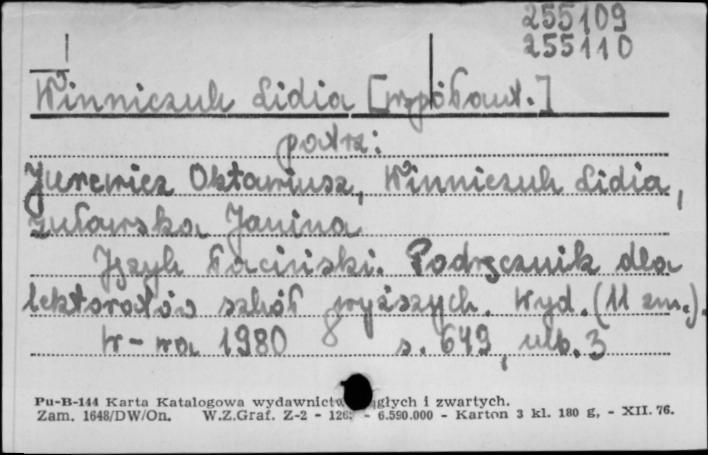 255109
255110
Winniczuk Lidia [współaut.]
patrz:
Jurewicz Oktawiusz, Winniczuk Lidia,
Żuławska Janina
Język łaciński. Podręcznik dla
lektoratów szkół wyższych. Wyd. (11 zm.).
W-wa 1980 8 s. 649, ulb. 3
Pu-B-144 Karta Katalogowa wydawnictw ciągłych i zwartych.
Zam. 1648/DW/On. W.Z.Graf. Z-2 - 126 - 6.590.000 - Karton 3 kl. 180 g, - XII. 76.